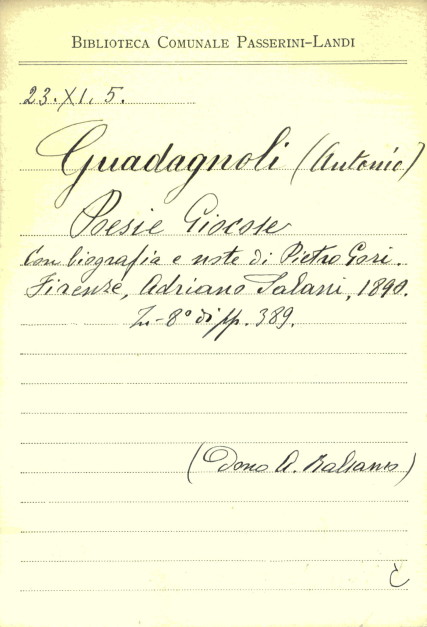 BIBLIOTECA COMUNALE PASSERINI-LANDI
23. XI. 5.
Guadagnoli (Antonio)
Poesie Giocose
Con biografia e note di Pietro Gori.
Firenze, Adriano Salani, 1890.
In-8° di pp. 389.
(Dono A. Balsamo)